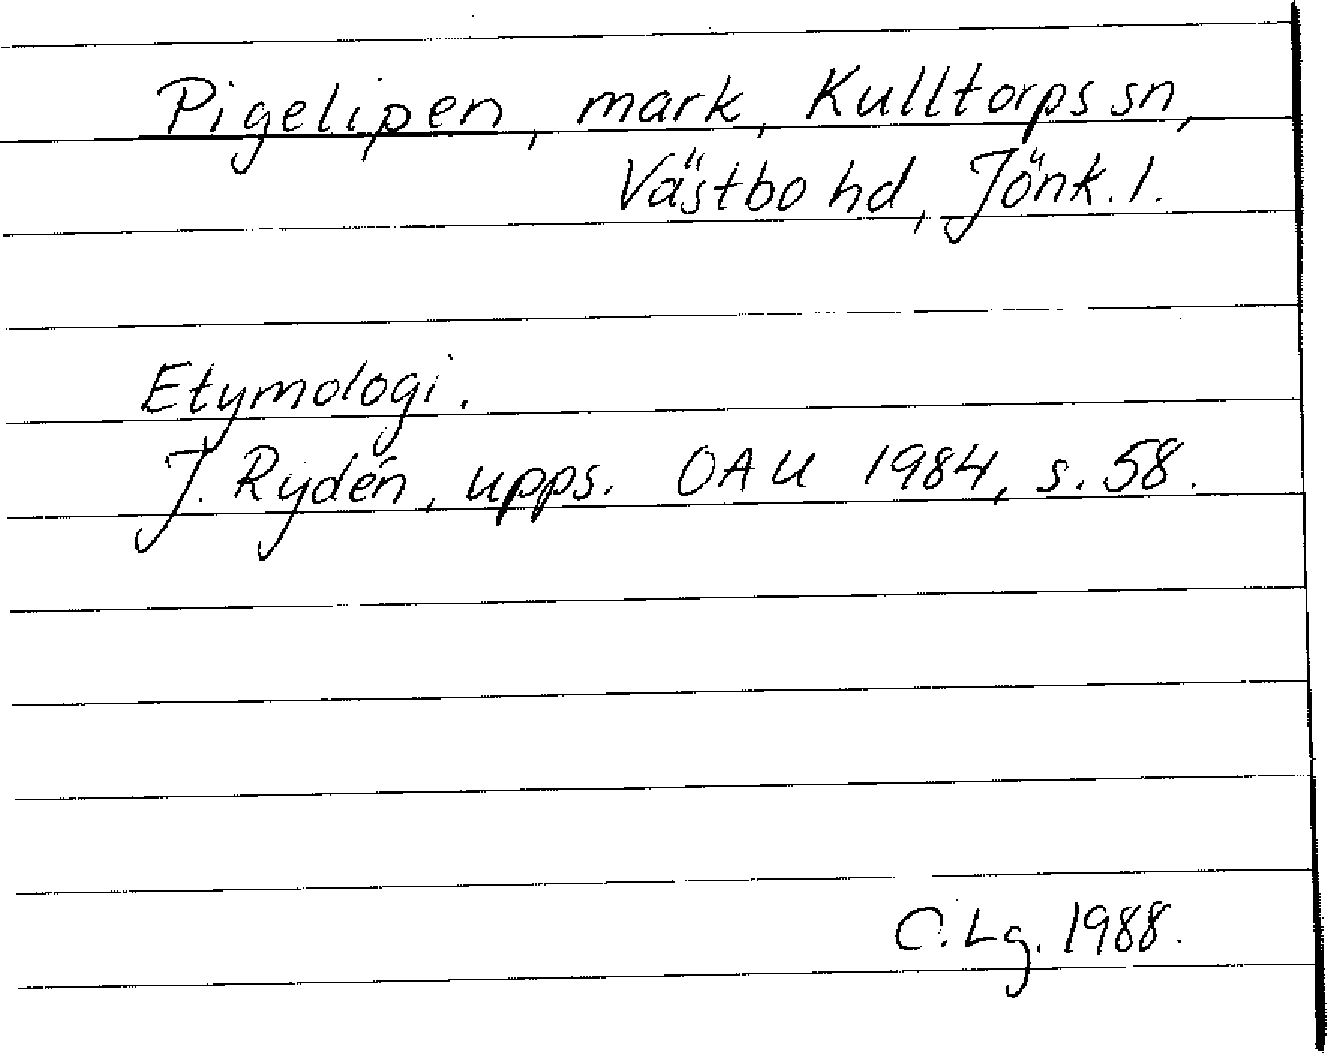 Pigelipen, mark, Kulltorps sn,
Västbo hd, Jönk. l.
Etymologi.
J. Rydén, upps. OAU 1984, s. 58.
C. Lg. 1988.